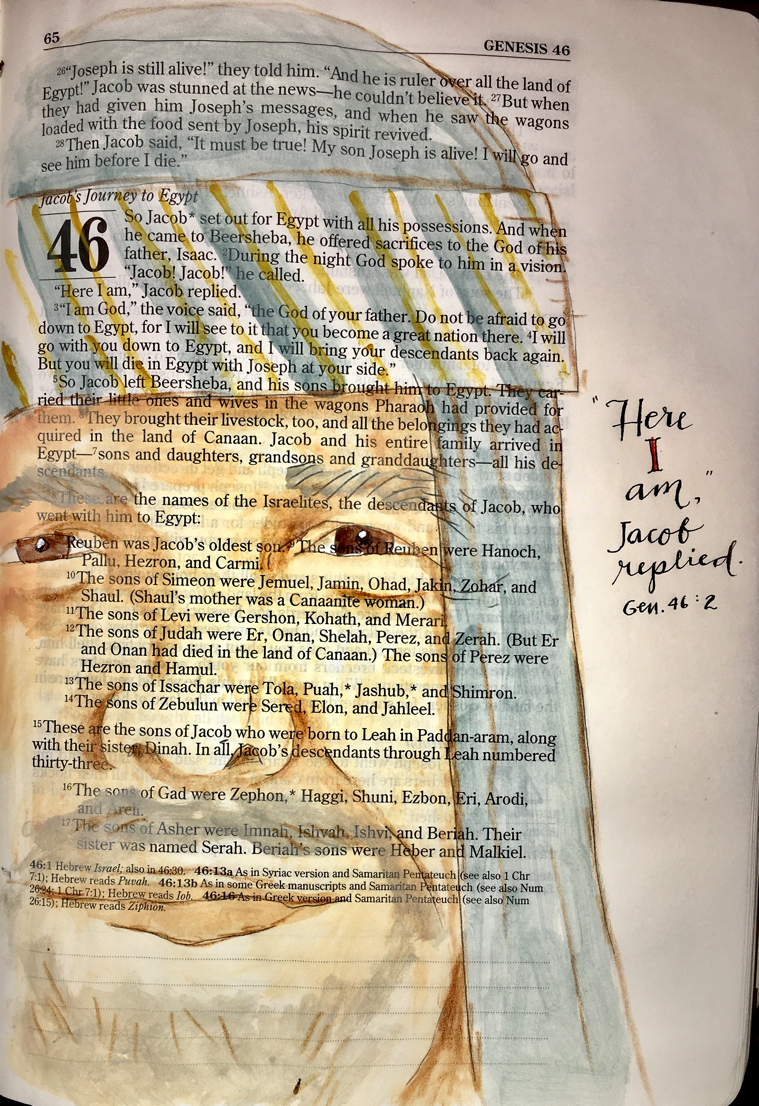 65
GENESIS 46
26“Joseph is still alive!” they told him. “And he is ruler over all the land of
Egypt!” Jacob was stunned at the news—he couldn’t believe it. 27But when
they had given him Joseph’s messages, and when he saw the wagons
loaded with the food sent by Joseph, his spirit revived.
28Then Jacob said, “It must be true! My son Joseph is alive! I will go and
see him before I die.”
Jacob’s Journey to Egypt
46 So Jacob* set out for Egypt with all his possessions. And when
he came to Beersheba, he offered sacrifices to the God of his
father, Isaac. 2During the night God spoke to him in a vision.
“Jacob! Jacob!” he called.
“Here I am,” Jacob replied.
3“I am God,” the voice said, “the God of your father. Do not be afraid to go
down to Egypt, for I will see to it that you become a great nation there. 4I will
go with you down to Egypt, and I will bring your descendants back again.
But you will die in Egypt with Joseph at your side.”
5So Jacob left Beersheba, and his sons brought him to Egypt. They car-
ried their little ones and wives in the wagons Pharaoh had provided for
them. 6They brought their livestock, too, and all the belongings they had ac-
quired in the land of Canaan. Jacob and his entire family arrived in
Egypt—7sons and daughters, grandsons and granddaughters—all his de-
scendants.
8These are the names of the Israelites, the descendants of Jacob, who
went with him to Egypt:
Reuben was Jacob’s oldest son. 9The sons of Reuben were Hanoch,
Pallu, Hezron, and Carmi.
10The sons of Simeon were Jemuel, Jamin, Ohad, Jakin, Zohar, and
Shaul. (Shaul’s mother was a Canaanite woman.)
11The sons of Levi were Gershon, Kohath, and Merari.
12The sons of Judah were Er, Onan, Shelah, Perez, and Zerah. (But Er
and Onan had died in the land of Canaan.) The sons of Perez were
Hezron and Hamul.
13The sons of Issachar were Tola, Puah,* Jashub,* and Shimron.
14The sons of Zebulun were Sered, Elon, and Jahleel.
15These are the sons of Jacob who were born to Leah in Paddan-aram, along
with their sister, Dinah. In all, Jacob’s descendants through Leah numbered
thirty-three.
16The sons of Gad were Zephon,* Haggi, Shuni, Ezbon, Eri, Arodi,
and Areli.
17The sons of Asher were Imnah, Ishvah, Ishvi, and Beriah. Their
sister was named Serah. Beriah’s sons were Heber and Malkiel.
46:1 Hebrew Israel; also in 46:30. 46:13a As in Syriac version and Samaritan Pentateuch (see also 1 Chr
7:1); Hebrew reads Puvah. 46:13b As in some Greek manuscripts and Samaritan Pentateuch (see also Num
26:24; 1 Chr 7:1); Hebrew reads Iob. 46:16 As in Greek version and Samaritan Pentateuch (see also Num
26:15); Hebrew reads Ziphion.
“Here
I
am,”
Jacob
replied.
Gen. 46:2